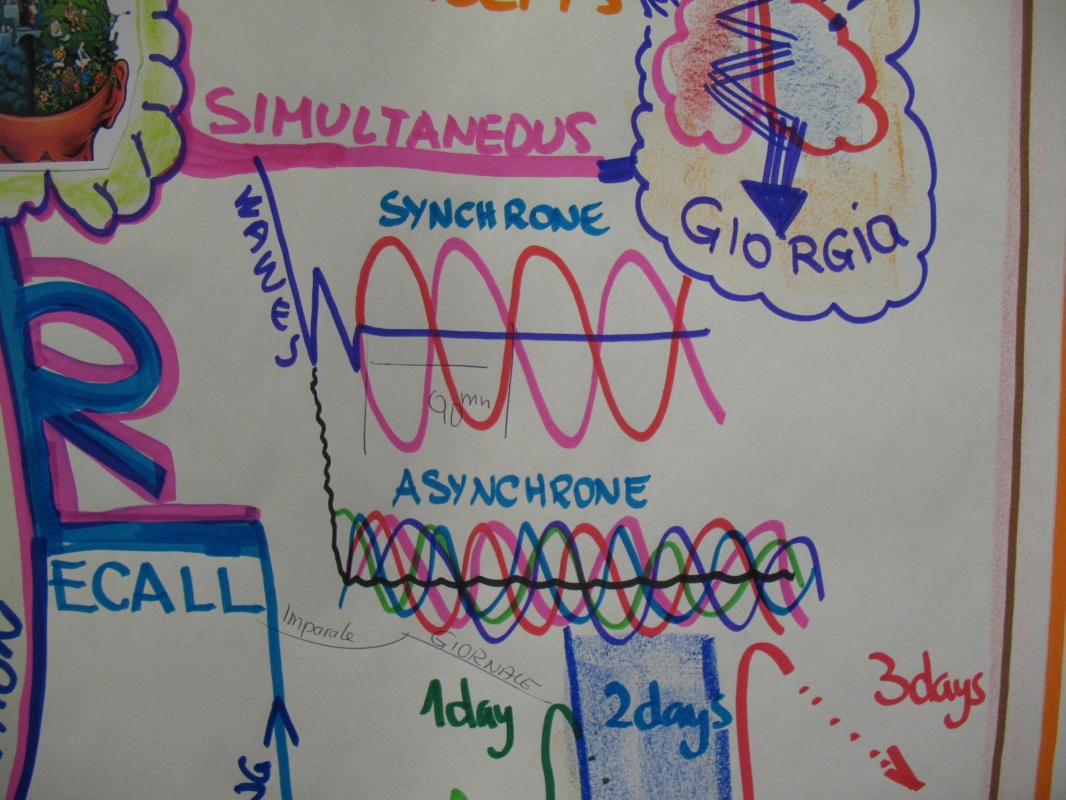 SIMULTANEOUS
WAWES
SYNCHRONE
GIORGIA
90 mn
ASYNCHRONE
RECALL
Imparale
GIORNALE
1day
2days
3days